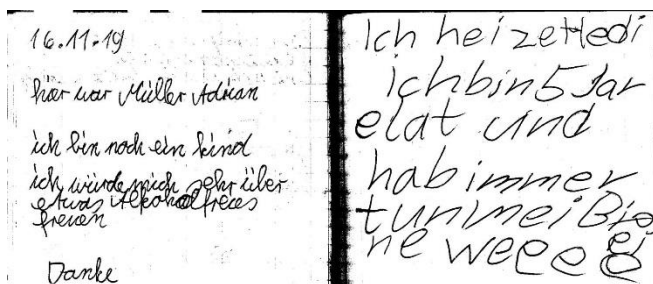 16.11.19
hier war Müller Adrian
ich bin noch ein kind
ich würde mich sehr über
etwas Alkoholfreies
freuen
Danke
Ich heizettedi
ichbin 5 Jar
elat und
hab immer